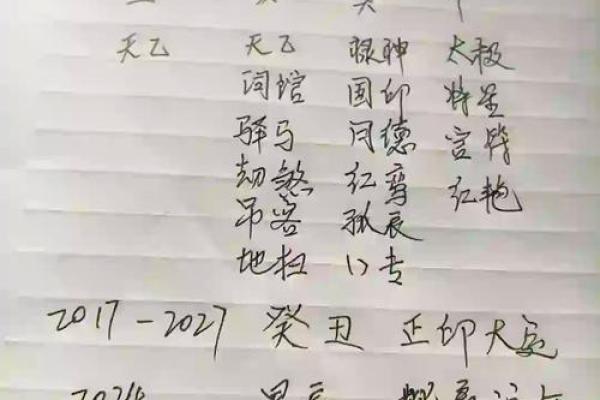 天乙 天乙 禄神 太极
词馆 国印 将星
驿马 月德 官符
劫煞 红鸾 红艳
吊客 孤辰
地扫 八专
2017-2027 癸丑 正印大运